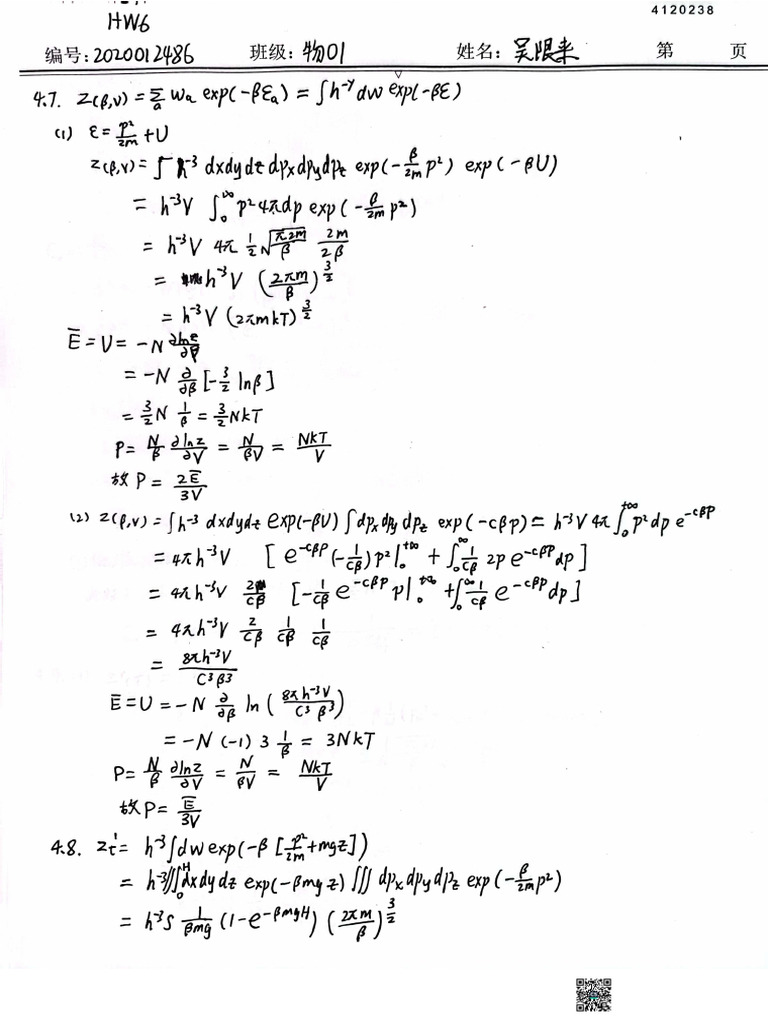 4120238
HW6
编号:2020012486 班级:物01 姓名:吴限来 第 页
4.7. Z(β,V) = Σ_a ω_a exp(-βε_a) = ∫h^{-r} dω exp(-βε)
(1) ε = p²/2m + U
Z(β,V) = ∫ h⁻³ dxdydz dp_x dp_y dp_z exp(-β/2m p²) exp(-βU)
= h⁻³V ∫₀^∞ p² 4π dp exp(-β/2m p²)
= h⁻³V 4π 1/2 √(π2m/β) 2m/2β
= h⁻³V (2πm/β)^{3/2}
= h⁻³V (2πmkT)^{3/2}
Ē = U = -N ∂lnz/∂β
= -N ∂/∂β [-3/2 lnβ]
= 3/2 N 1/β = 3/2 NkT
P = N/β ∂lnz/∂V = N/βV = NkT/V
故 P = 2Ē/3V
(2) Z(β,V) = ∫h⁻³ dxdydz exp(-βU) ∫dp_x dp_y dp_z exp(-cβp) = h⁻³V 4π ∫₀^{+∞} p² dp e^{-cβp}
= 4πh⁻³V [e^{-cβp} (-1/cβ) p² |₀^{+∞} + ∫₀^∞ 1/cβ 2p e^{-cβp} dp]
= 4πh⁻³V 2/cβ [-1/cβ e^{-cβp} p |₀^{+∞} + ∫₀^∞ 1/cβ e^{-cβp} dp]
= 4πh⁻³V 2/cβ 1/cβ 1/cβ
= 8πh⁻³V/C³β³
Ē = U = -N ∂/∂β ln(8πh⁻³V/C³β³)
= -N (-1) 3 1/β = 3NkT
P = N/β ∂lnz/∂V = N/βV = NkT/V
故 P = Ē/3V
4.8. Z_t' = h⁻³∫dω exp(-β[p²/2m + mgz])
= h⁻³∭₀^H dxdydz exp(-βmgz) ∭ dp_x dp_y dp_z exp(-β/2m p²)
= h⁻³S 1/βmg (1-e^{-βmgH}) (2πm/β)^{3/2}